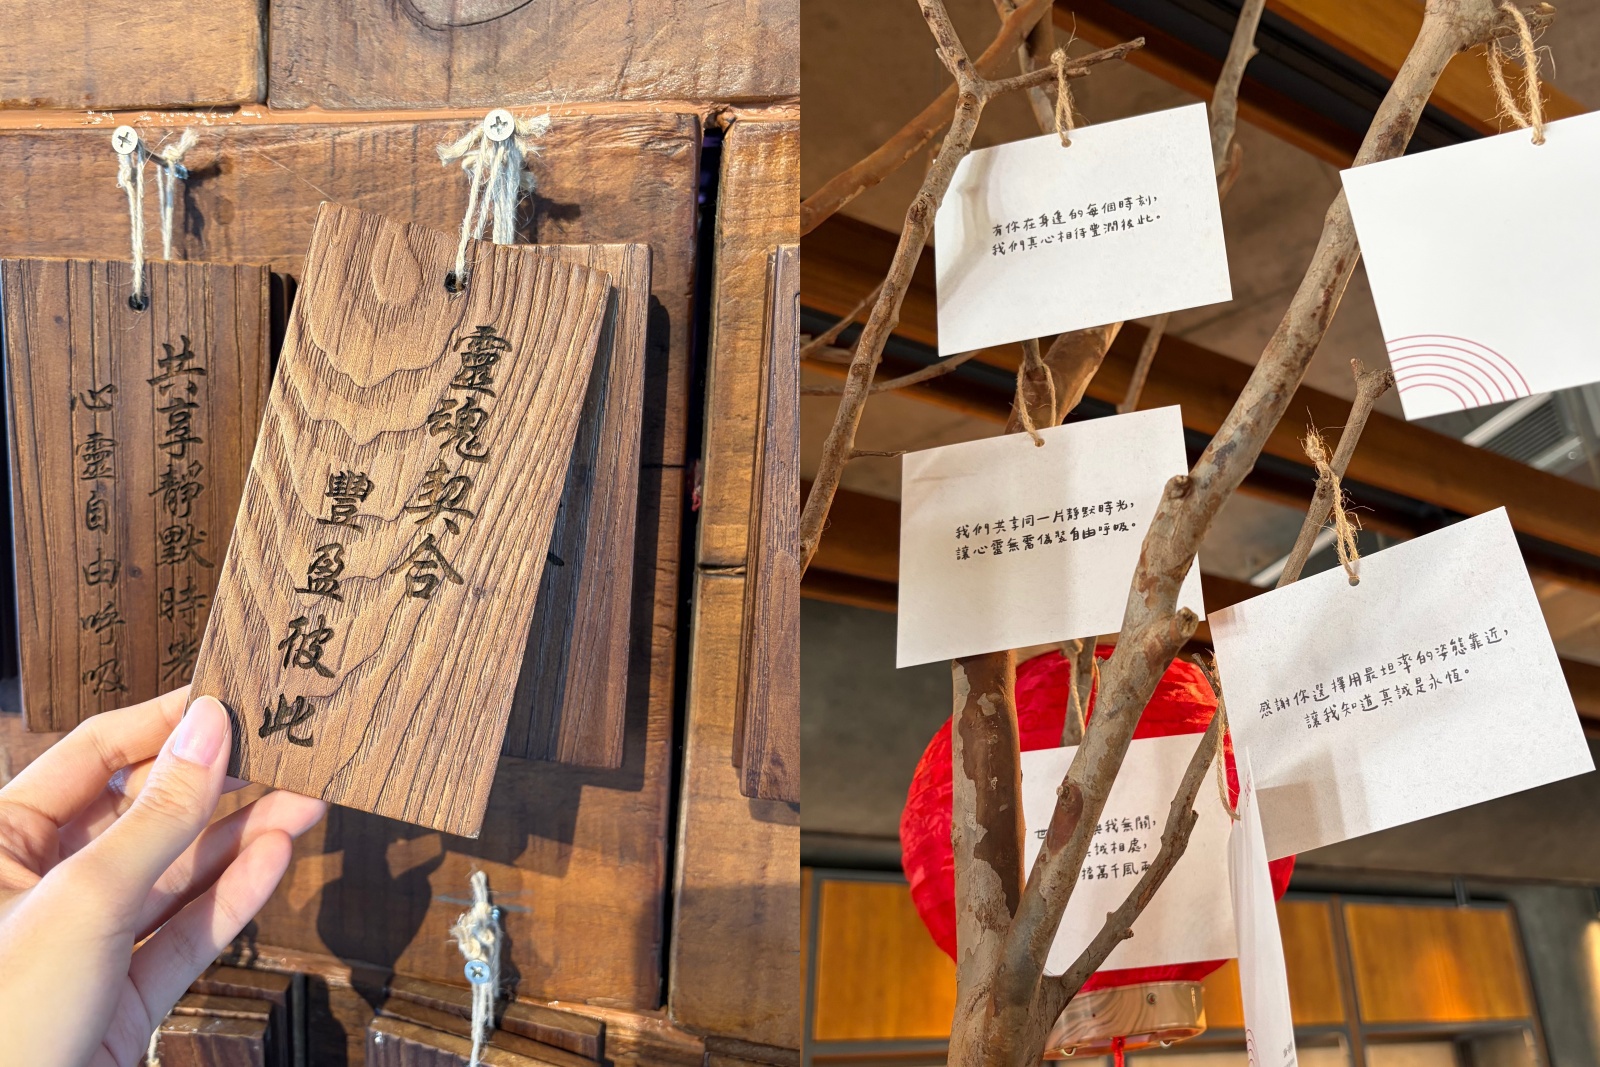 共享靜默時光
心靈自由呼吸
靈魂契合
豐盈彼此
有你在身邊的每個時刻，
我們真心相待豐潤彼此。
我們共享同一片靜默時光，
讓心靈無需偽裝自由呼吸。
感謝你選擇用最坦率的姿態靠近，
讓我知道真誠是永恆。
世
與我無關，
誠相處，
擋萬千風雨